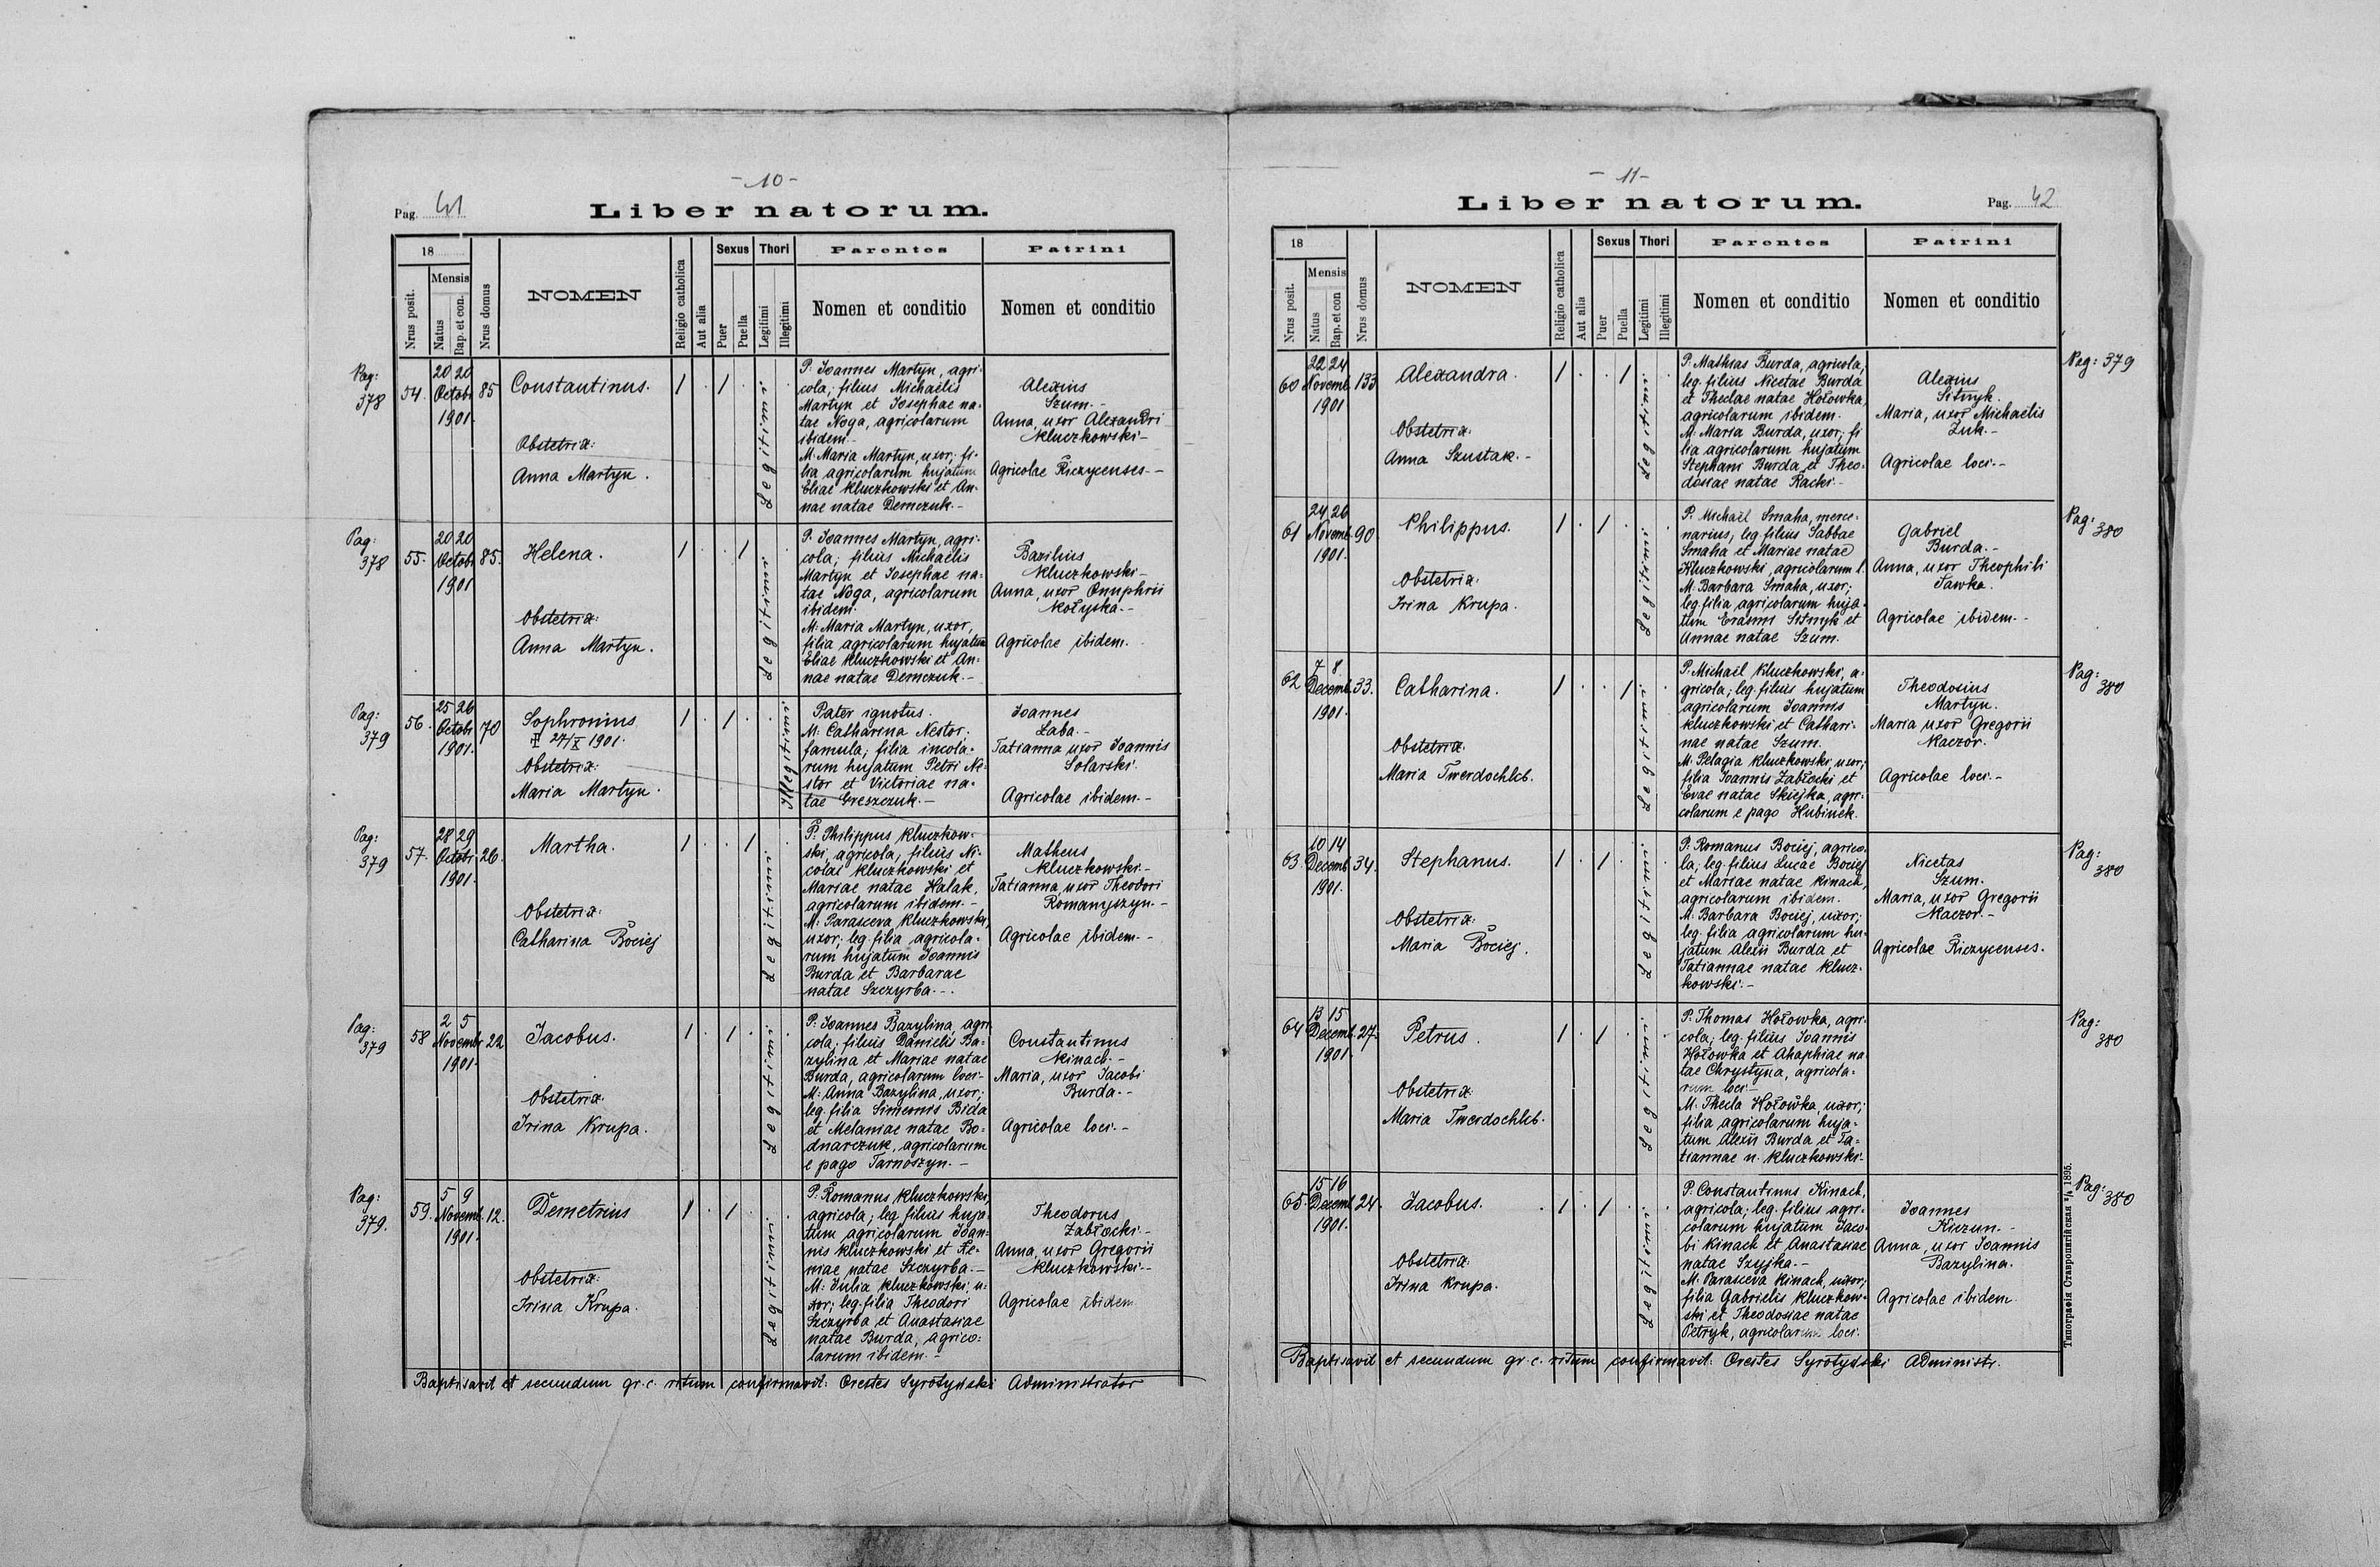 - 10 -
Pag. 41
Liber natorum.
18
Nrus posit.
Mensis
Natus
Bap. et con.
Nrus domus
NOMEN
Religio catholica
Aut alia
Sexus
Puer
Puella
Thori
Legitimi
Illegitimi
Parentes
Nomen et conditio
Patrini
Nomen et conditio
Pag:
378
54.
20 20
Octobr
1901.
85
Constantinus.
Obstetrix:
Anna Martyn.
1 . 1 .
Legitimi
P. Joannes Martyn, agri-
cola; filius Michaëlis
Martyn et Josephae na-
tae Noga, agricolarum
ibidem.-
M. Maria Martyn, uxor; fi-
lia agricolarum hujatum
Eliae Kluczkowski et An-
nae natae Demczuk.-
Alexius
Szum.-
Anna, uxor Alexandri
Kluczkowski-
Agricolae Rzeczycenses.-
Pag:
378
55.
20 20
Octobr
1901
85.
Helena.
Obstetrix:
Anna Martyn.
1 . . 1
Legitimi
P. Joannes Martyn, agri-
cola; filius Michaëlis
Martyn et Josephae na-
tae Noga, agricolarum
ibidem.
M. Maria Martyn, uxor,
filia agricolarum hujatum
Eliae Kluczkowski et An-
nae natae Demczuk.-
Bazilius
Kluczkowski-
Anna, uxor Onuphrii
Kołyska.-
Agricolae ibidem.
Pag:
379
56.
25 26
Octobr
1901.
70
Sophronius.
27/X 1901.
Obstetrix:
Maria Martyn.
1 . 1 .
Illegitimi
Pater ignotus.
M. Catharina Nestor,
famula; filia incola-
rum hujatum Petri Ne-
stor et Victoriae na-
tae Greszczuk.-
Joannes
Łaba.-
Tatianna uxor Joannis
Solarski.
Agricolae ibidem.-
Pag:
379
57.
28 29
Octobr
1901.
26.
Martha.
Obstetrix:
Catharina Bociej
1 . . 1
Legitimi
P. Philippus Kluczkow-
ski, agricola, filius Ni-
colai Kluczkowski et
Mariae natae Halak,
agricolarum ibidem.-
M. Parasceva Kluczkowski,
uxor; leg. filia agricola-
rum hujatum Joannis
Burda et Barbarae
natae Szczyrba.-.
Matheus
Kluczkowski.-
Tatianna, uxor Theodori
Romanyszyn.-
Agricolae ibidem.-
Pag:
379
58
2 5
Novembr
1901.
22
Jacobus.
Obstetrix:
Irina Krupa.
1 . 1 .
Legitimi
P. Joannes Bazylina, agri-
cola; filius Danielis Ba-
zylina et Mariae natae
Burda, agricolarum loci-
M. Anna Bazylina, uxor;
leg. filia Simeonis Bida
et Melaniae natae Bo-
dnarczuk, agricolarum
e pago Tarnoszyn.-
Constantinus
Kinach.-
Maria, uxor Jacobi
Burda.-
Agricolae loci.-
Pag:
379.
59.
5 9
Novemb.
1901.
12.
Demetrius
Obstetrix:
Irina Krupa.
1 . 1 .
Legitimi
P. Romanus Kluczkowski,
agricola; leg. filius huja-
tum agricolarum Joan-
nis Kluczkowski et Xe-
niae natae Szczyrba.-
M. Julia Kluczkowski, u-
xor; leg. filia Theodori
Szczyrba et Anastasiae
natae Burda, agrico-
larum ibidem.-
Theodorus
Zabłocki.-
Anna, uxor Gregorii
Kluczkowski.-
Agricolae ibidem
Baptisavit et secundum gr. c. ritum confirmavit: Orestes Syrotyński Administrator
- 11 -
Liber natorum.
Pag. 42
18
Nrus posit.
Mensis
Natus
Bap. et con
Nrus domus
NOMEN
Religio catholica
Aut alia
Sexus
Puer
Puella
Thori
Legitimi
Illegitimi
Parentes
Nomen et conditio
Patrini
Nomen et conditio
60
22 24
Novemb.
1901.
133
Alexandra.
Obstetrix:
Anna Szustak.-
1 . . 1
Legitimi
P. Mathias Burda, agricola,
leg. filius Nicetae Burda
et Theclae natae Hołowka,
agricolarum ibidem.
M. Maria Burda, uxor; fi
lia agricolarum hujatum
Stephani Burda et Theo-
dosiae natae Racki.-
Alexius
Sitnyk.
Maria, uxor Michaëlis
Żuk.-
Agricolae loci.-
Pag: 379
61
24 26
Novemb.
1901.
90
Philippus.
Obstetrix:
Irina Krupa.
1 . 1 .
Legitimi
P. Michaël Smaha, merce-
narius; leg. filius Sabbae
Smaha et Mariae natae
Kluczkowski, agricolarum l.
M. Barbara Smaha, uxor;
leg. filia agricolarum huja-
tum Erasmi Sitnyk et
Annae natae Szum.
Gabriel
Burda.-
Anna, uxor Theophili
Sawka.
Agricolae ibidem.-
Pag:
380
62
7 8
Decemb.
1901.
33.
Catharina.
Obstetrix:
Maria Twerdochlib.
1 . . 1
Legitimi
P. Michaël Kluczkowski, a-
gricola; leg. filius hujatum
agricolarum Joannis
Kluczkowski et Cathari-
nae natae Szum.
M. Pelagia Kluczkowski, uxor;
filia Joannis Zabłocki et
Evae natae Skiejka, agri-
colarum e pago Hubinek.
Theodosius
Martyn.
Maria uxor Gregorii
Kaczor.
Agricolae loci.-
Pag:
380
63
10 14
Decemb
1901.
34.
Stephanus.
Obstetrix:
Maria Bociej.
1 . 1 .
Legitimi
P. Romanus Bociej, agrico-
la; leg. filius Lucae Bociej
et Mariae natae Kinach,
agricolarum ibidem.
M. Barbara Bociej, uxor;
leg. filia agricolarum hu-
jatum Alexii Burda et
Tatiannae natae Klucz-
kowski.-
Nicetas
Szum.
Maria, uxor Gregorii
Kaczor.-
Agricolae Rzeczycenses.
Pag:
380
64
13 15
Decemb.
1901.
27.
Petrus.
Obstetrix:
Maria Twerdochlib.
1 . 1 .
Legitimi
P. Thomas Hołowka, agri-
cola; leg. filius Joannis
Hołowka et Ahaphiae na
tae Chrystyna, agricola-
rum loci-
M. Thecla Hołowka, uxor;
filia agricolarum huja-
tum Alexii Burda et Ta-
tiannae n. Kluczkowski-
Pag:
380
65.
15 16
Decemb.
1901.
24.
Jacobus.
Obstetrix:
Irina Krupa.
1 . 1 .
Legitimi
P. Constantinus Kinach,
agricola; leg. filius agri-
colarum hujatum Jaco-
bi Kinach et Anastasiae
natae Szyjka.-
M. Parasceva Kinach, uxor;
filia Gabrielis Kluczkow-
ski et Theodosiae natae
Petryk, agricolarum loci.
Joannes
Kuzun.-
Anna, uxor Joannis
Bazylina.
Agricolae ibidem
Pag:
380
Baptisavit et secundum gr. c. ritum confirmavit: Orestes Syrotyński Administr.
Типографія Ставропигійская 1895.